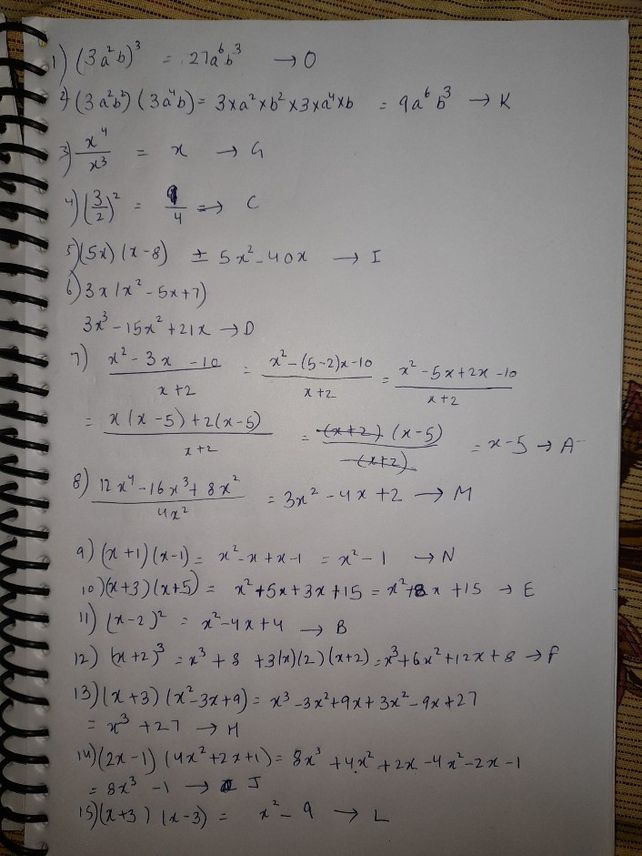 1) (3a²b)³ = 27a⁶b³ → O
2) (3a²b²) (3a⁴b) = 3×a²×b²×3×a⁴×b = 9a⁶b³ → K
3) x⁴/x³ = x → G
4) (3/2)² = 9/4 → C
5) (5x) (x-8) = 5x²-40x → I
6) 3x(x²-5x+7)
3x³-15x²+21x → D
7) x²-3x-10/x+2 = x²-(5-2)x-10/x+2 = x²-5x+2x-10/x+2
= x(x-5)+2(x-5)/x+2 = (x+2)(x-5)/(x+2) = x-5 → A
8) 12x⁴-16x³+8x²/4x² = 3x²-4x+2 → M
9) (x+1)(x-1) = x²-x+x-1 = x²-1 → N
10) (x+3)(x+5) = x²+5x+3x+15 = x²+8x+15 → E
11) (x-2)² = x²-4x+4 → B
12) (x+2)³ = x³+8+3(x)(2)(x+2) = x³+6x²+12x+8 → F
13) (x+3) (x²-3x+9) = x³-3x²+9x+3x²-9x+27
= x³+27 → H
14) (2x-1) (4x²+2x+1) = 8x³+4x²+2x-4x²-2x-1
= 8x³-1 → J
15) (x+3) (x-3) = x²-9 → L